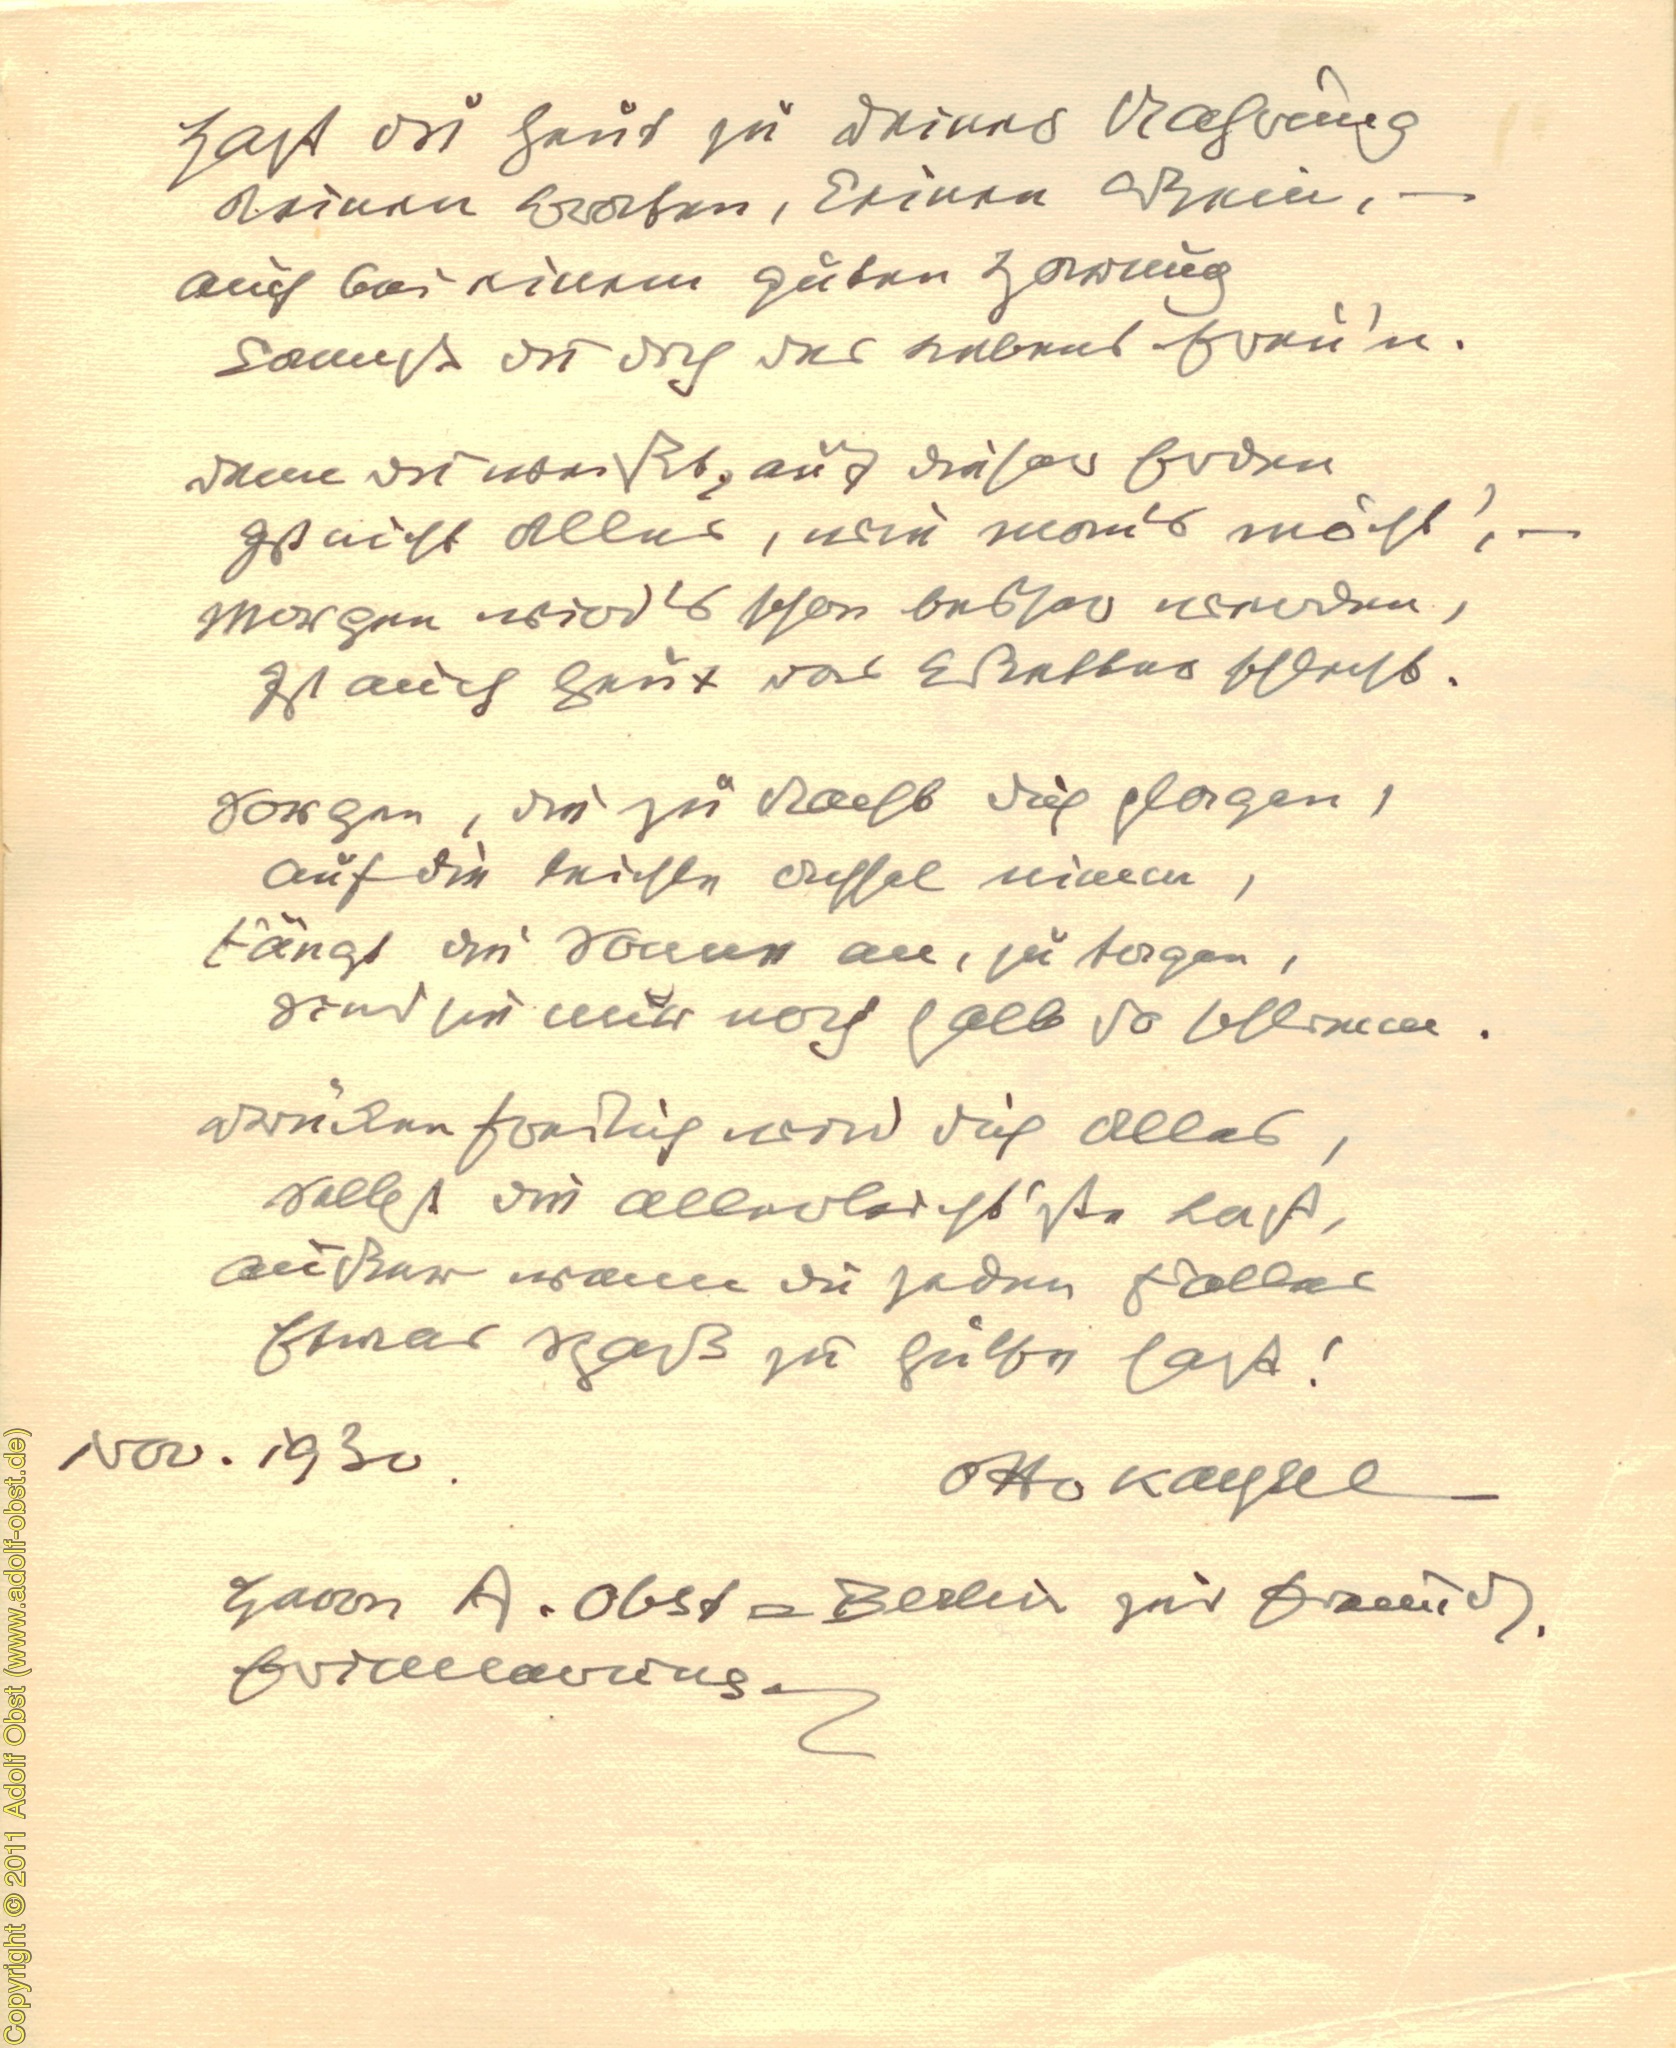 Hast du heut zu deiner Nahrung
Keinen Braten, keinen Wein, —
auch bei einem guten Hering
Kannst du dich des Lebens freu'n.
denn du weißt, auf dieser Erden
Ist nicht Alles, wie man's möcht', —
Morgen wird's schon besser werden,
Ist auch heut das Wetter schlecht.
Sorgen, die zu Nacht dich plagen,
auf die leichte Achsel nimm,
Fängt die Sonne an, zu tagen,
Sind sie nur noch halb so schlimm.
drücken freilich wird dich Alles,
Selbst die allerleicht'ste Last,
außer wenn du jeden Falles
Etwas Spaß zu Hülfe hast!
Nov. 1930.
Otto Kaysel
Herrn A. Obst = Berlin zur freundl.
Erinnerung.
Copyright © 2011 Adolf Obst (www.adolf-obst.de)